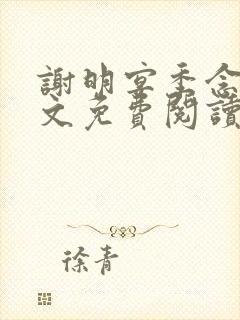 謝明宴季念
文免費閱讀
徐青